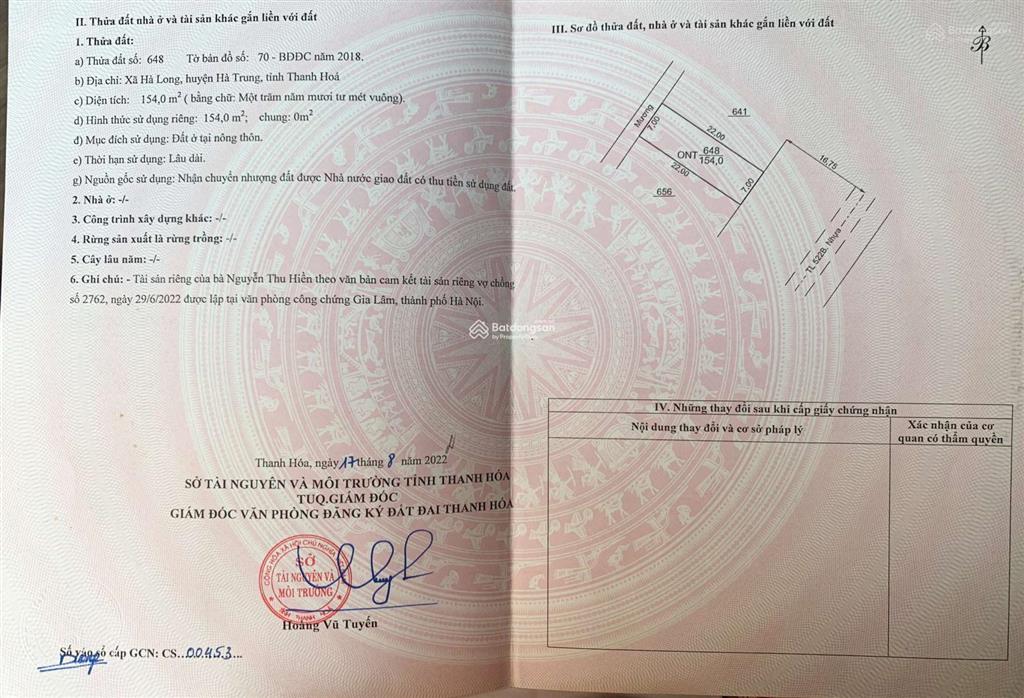 II. Thửa đất nhà ở và tài sản khác gắn liền với đất
1. Thửa đất:
a) Thửa đất số: 648 Tờ bản đồ số: 70 - BĐĐC năm 2018.
b) Địa chỉ: Xã Hà Long, huyện Hà Trung, tỉnh Thanh Hoá
c) Diện tích: 154,0 m² ( bằng chữ: Một trăm năm mươi tư mét vuông).
d) Hình thức sử dụng riêng: 154,0 m²; chung: 0m²
đ) Mục đích sử dụng: Đất ở tại nông thôn.
e) Thời hạn sử dụng: Lâu dài.
g) Nguồn gốc sử dụng: Nhận chuyển nhượng đất được Nhà nước giao đất có thu tiền sử dụng đất.
2. Nhà ở: -/-
3. Công trình xây dựng khác: -/-
4. Rừng sản xuất là rừng trồng: -/-
5. Cây lâu năm: -/-
6. Ghi chú: - Tài sản riêng của bà Nguyễn Thu Hiền theo văn bản cam kết tài sản riêng vợ chồng
số 2762, ngày 29/6/2022 được lập tại văn phòng công chứng Gia Lâm, thành phố Hà Nội.
Thanh Hóa, ngày 17 tháng 8 năm 2022
SỞ TÀI NGUYÊN VÀ MÔI TRƯỜNG TỈNH THANH HÓA
TUQ.GIÁM ĐỐC
GIÁM ĐỐC VĂN PHÒNG ĐĂNG KÝ ĐẤT ĐAI THANH HÓA
CỘNG HÒA XÃ HỘI CHỦ NGHĨA
SỞ
TÀI NGUYÊN VÀ
MÔI TRƯỜNG
TỈNH THANH HÓA
Hoàng Vũ Tuyến
Số vào sổ cấp GCN: CS..00453...
III. Sơ đồ thửa đất, nhà ở và tài sản khác gắn liền với đất
B
Mương
7,00
22,00
641
ONT 648
154,0
22,00
7,00
656
16,75
TL 522B. Nhựa
Batdongsan
by PropertyGuru
Batdongsan
IV. Những thay đổi sau khi cấp giấy chứng nhận
Nội dung thay đổi và cơ sở pháp lý
Xác nhận của cơ
quan có thẩm quyền